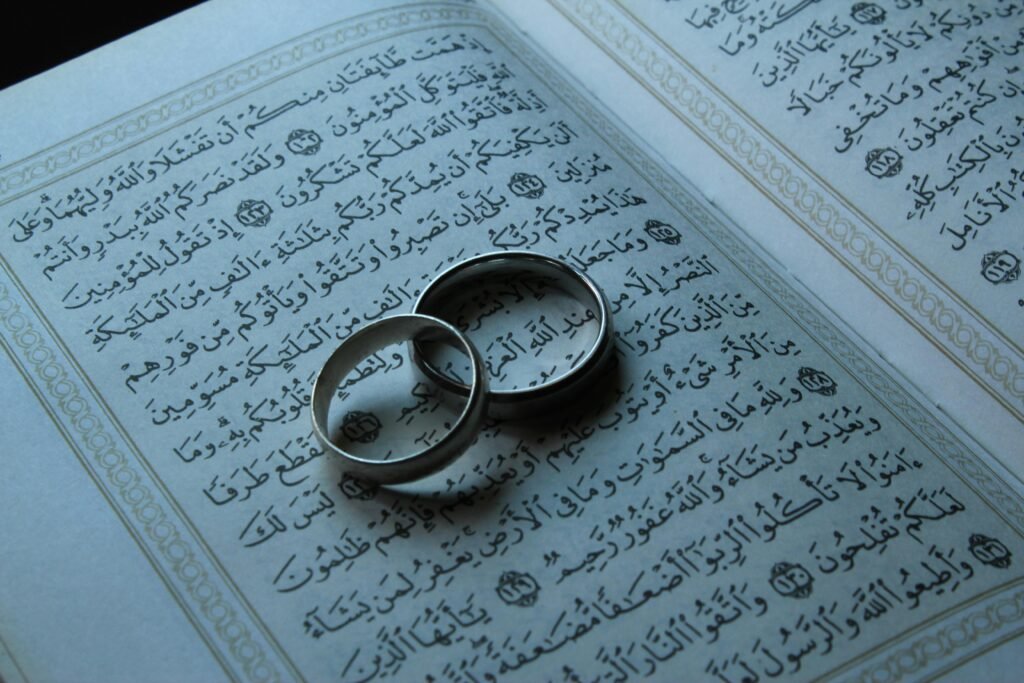 فِيهَا
وَمَا
يَٰٓأَيُّهَا ٱلَّذِينَ
دُونِكُمْ لَا يَأْلُونَكُمْ خَبَالًا
أَفْوَٰهِهِمْ وَمَا تُخْفِى
إِن كُنتُمْ تَعْقِلُونَ ١١٨
بِٱلْكِتَٰبِ كُلِّهِۦ
ٱلْأَنَامِلَ
١١٩
إِذْ هَمَّت طَّآئِفَتَانِ مِنكُمْ أَن تَفْشَلَا وَٱللَّهُ وَلِيُّهُمَا وَعَلَى
ٱللَّهِ فَلْيَتَوَكَّلِ ٱلْمُؤْمِنُونَ ١٢٢ وَلَقَدْ نَصَرَكُمُ ٱللَّهُ بِبَدْرٍ وَأَنتُمْ
أَذِلَّةٌ فَٱتَّقُوا۟ ٱللَّهَ لَعَلَّكُمْ تَشْكُرُونَ ١٢٣ إِذْ تَقُولُ لِلْمُؤْمِنِينَ
أَلَن يَكْفِيَكُمْ أَن يُمِدَّكُمْ رَبُّكُم بِثَلَٰثَةِ ءَالَٰفٍ مِّنَ ٱلْمَلَٰٓئِكَةِ
مُنزَلِينَ ١٢٤ بَلَىٰٓ إِن تَصْبِرُوا۟ وَتَتَّقُوا۟ وَيَأْتُوكُم مِّن فَوْرِهِمْ
هَٰذَا يُمْدِدْكُمْ رَبُّكُم ءَالَٰفٍ مِّنَ ٱلْمَلَٰٓئِكَةِ مُسَوِّمِينَ
١٢٥ وَمَا جَعَلَهُ إِلَّا بُشْرَىٰ وَلِتَطْمَئِنَّ قُلُوبُكُم بِهِۦ وَمَا
ٱلنَّصْرُ إِلَّا مِنْ عِندِ ٱللَّهِ ٱلْعَزِيزِ ٱلْحَكِيمِ ١٢٦ لِيَقْطَعَ طَرَفًا
مِّنَ ٱلَّذِينَ كَفَرُوٓا۟ لَيْسَ لَكَ
مِنَ ٱلْأَمْرِ شَىْءٌ أَوْ يَتُوبَ عَلَيْهِمْ أَوْ يُعَذِّبَهُمْ فَإِنَّهُمْ ظَٰلِمُونَ
١٢٨ وَلِلَّهِ مَا فِى ٱلسَّمَٰوَٰتِ وَمَا فِى ٱلْأَرْضِ يَغْفِرُ لِمَن يَشَآءُ
وَيُعَذِّبُ مَن يَشَآءُ وَٱللَّهُ غَفُورٌ رَّحِيمٌ ١٢٩ يَٰٓأَيُّهَا ٱلَّذِينَ
ءَامَنُوا۟ لَا تَأْكُلُوا۟ ٱلرِّبَوٰٓا۟ أَضْعَٰفًا مُّضَٰعَفَةً وَٱتَّقُوا۟
لَعَلَّكُمْ تُفْلِحُونَ ١٣٠ وَٱتَّقُوا۟ ٱلنَّارَ ٱلَّتِىٓ
١٣١ وَأَطِيعُوا۟ ٱللَّهَ وَٱلرَّسُولَ